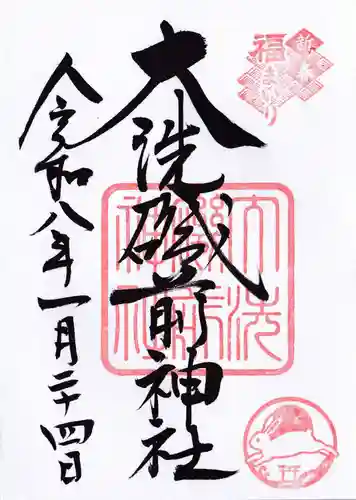 新春
福まいり
大洗磯前神社
大洗磯前神社
令和八年一月二十四日